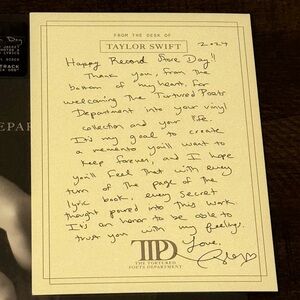 FROM THE DESK OF
TAYLOR SWIFT
2024
Happy Record Store Day!!
Thank you, from the
bottom of my heart, for
welcoming the Tortured Poets
Department into your vinyl
collection and your life.
It's my goal to create
a memento you'll want to
keep forever, and I hope
you'll feel that with every
turn of the page of the
lyric book, every secret
thought poured into this work.
It's an honor to be able to
trust you with my feelings.
Love,
TTPD
THE TORTURED
POETS DEPARTMENT
TRACK
EPAR